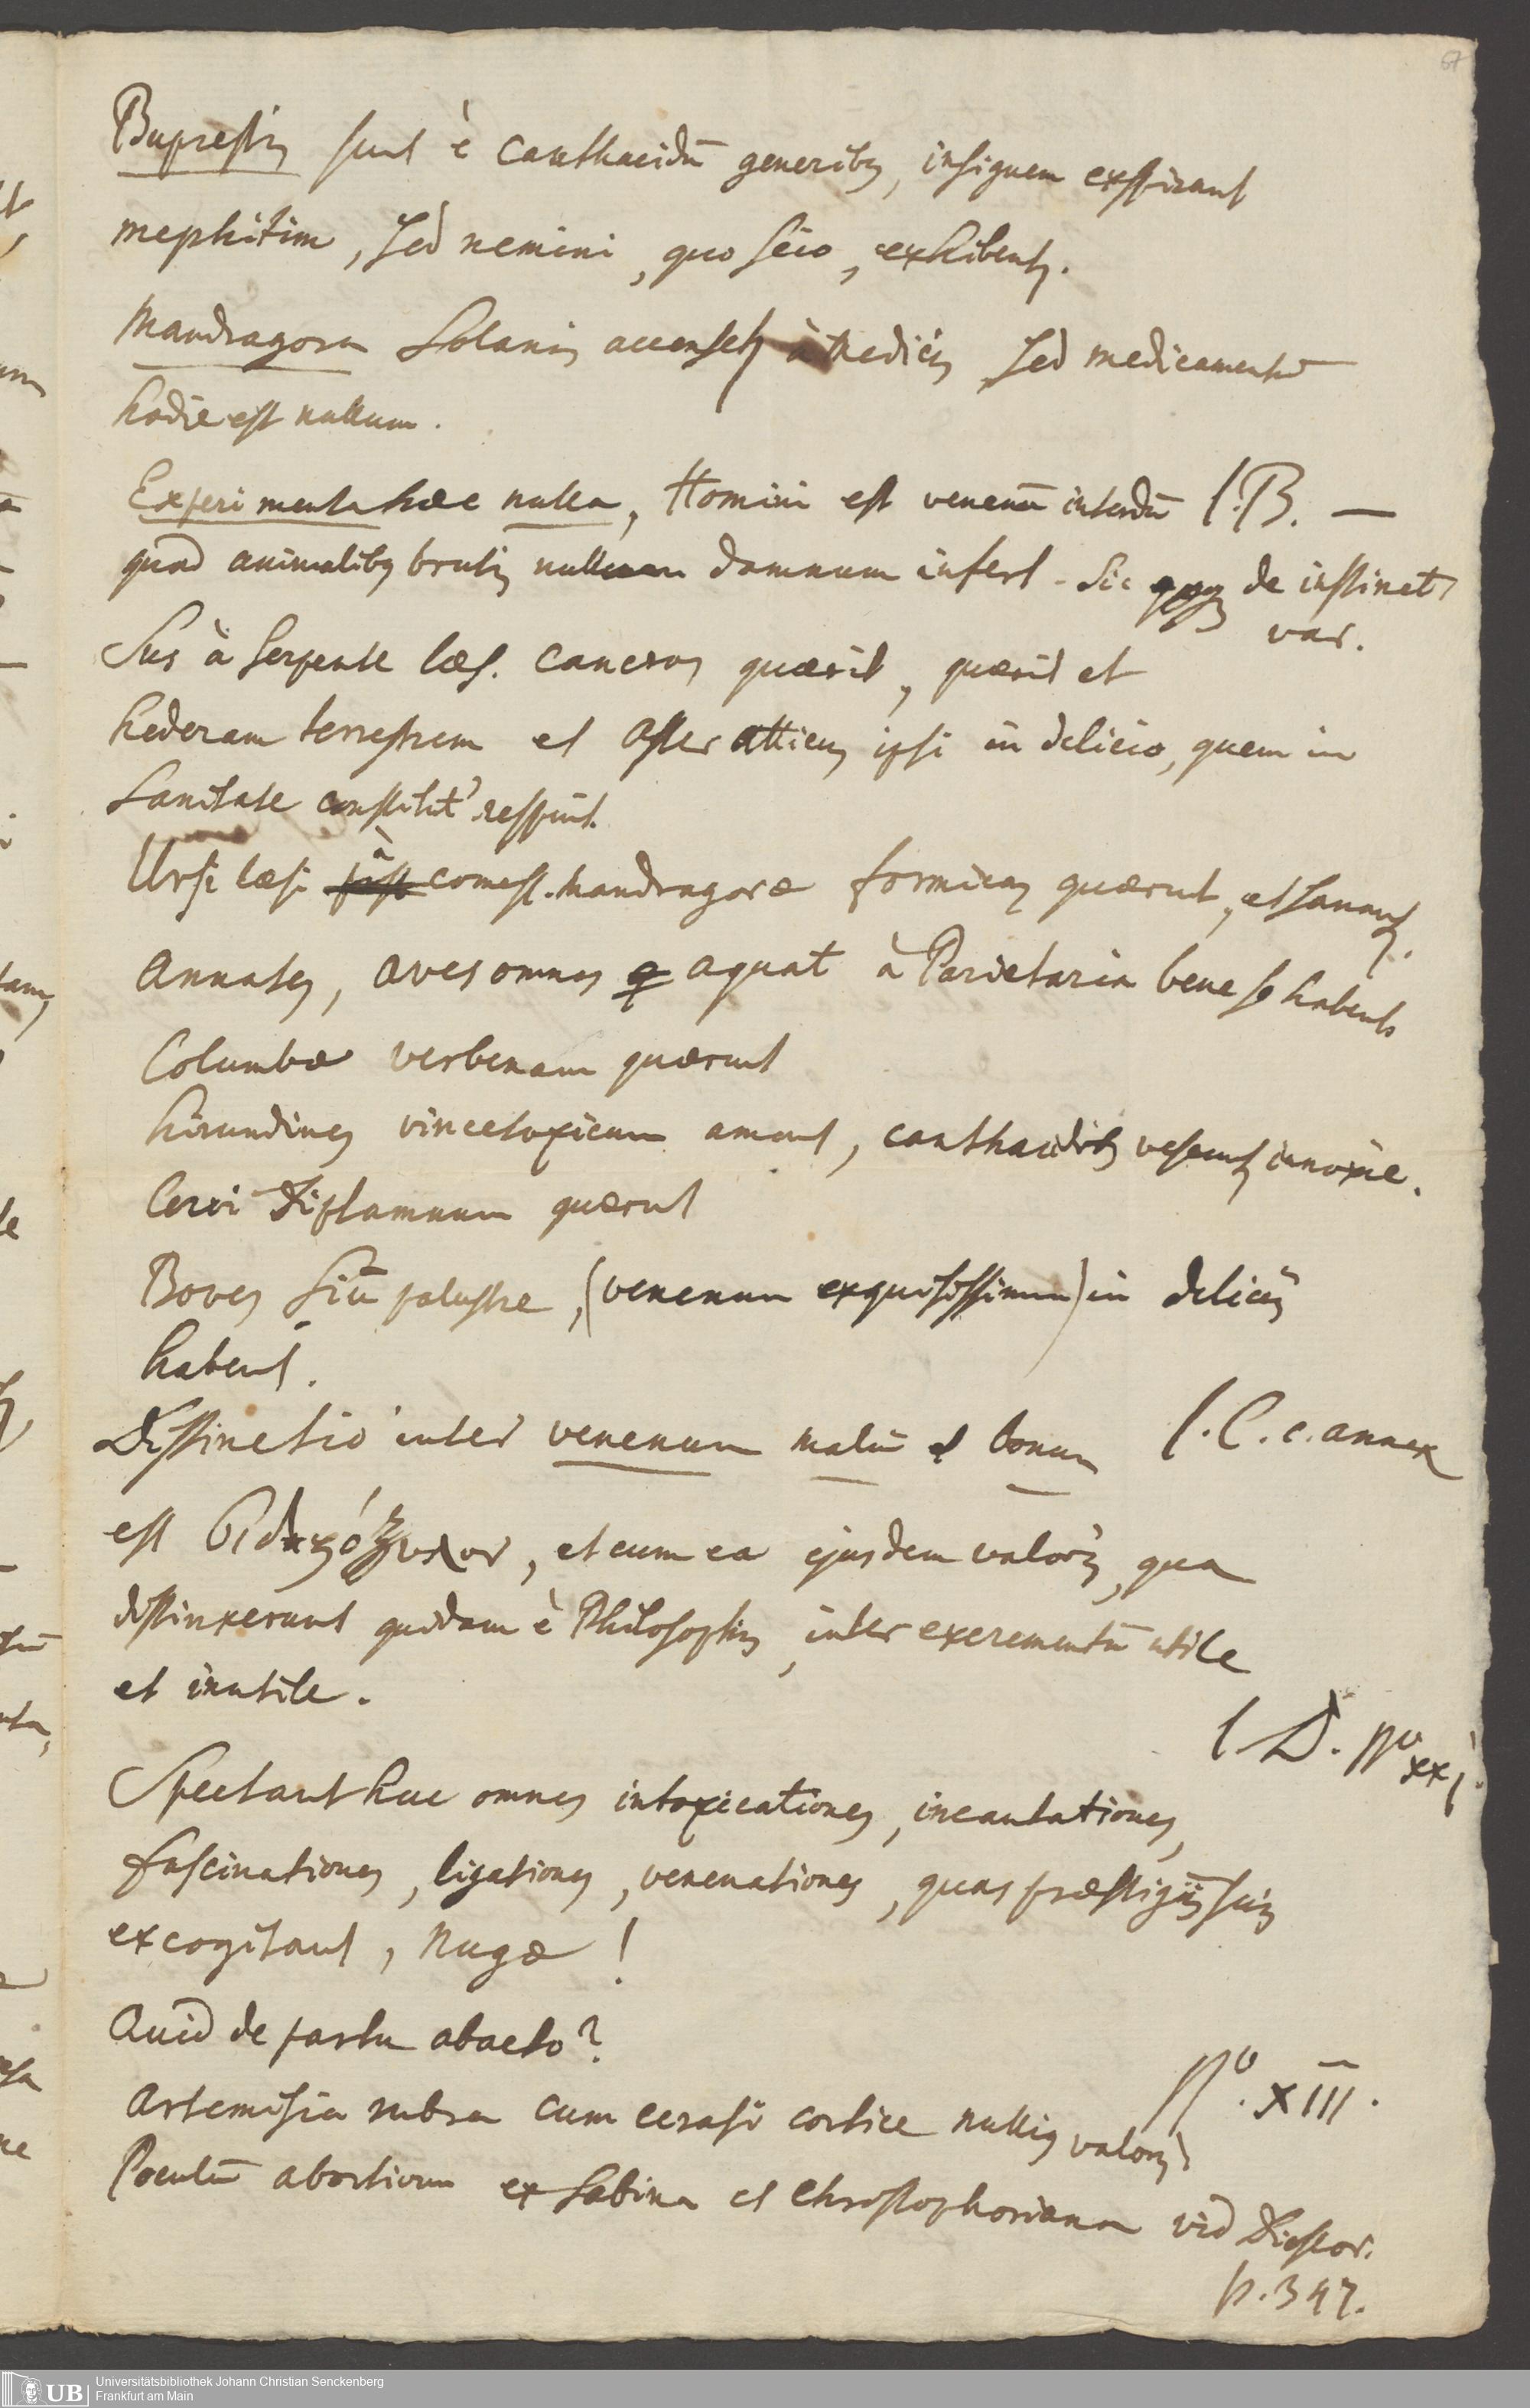 67
Buprestis sunt è cantharidū generibs, insignem exspirant
mephitim, sed nemini, quo scio, exhibentr.
Mandragora Solanis accensetr à Medicis sed medicamentū
hodie est nullum.
Experimenta haec nulla, Homini est venenū interdū l. B. —
quod animalibs brutis nullum damnum infert. Sic de instinct
var.
Sus à serpente laes. cancros quaerit, quaerit et
hederam terrestrem et Aster Atticus ipsi in delicio, quem in
sanitate constitut' respuit.
Ursi laesi à comest. mandragorae formicas quaerunt, et sanantr.
Annates, aves omnes aquat à Parietaria bene se habent
Columbae verbenam quaerunt
hirundines vincetoxicum amant, cantharidibs vescuntr innoxie.
Cervi Diptamnum quaerunt
Boves Siū palustre, (venenum exquisitissimum) in deliciis
habent.
Distinctio inter venenum malū et bonum l. C. c. annex
est σιδηρόξυλον, et cum ea ejusdem valoris, qua
distinxerunt quidam è Philosophis, inter excrementū utile
et inutile.
l. D. No xxj.
Spectant huc omnes intoxicationes, incantationes,
fascinationes, ligationes, venenationes, quas praestigiis suis
excogitant, nugae!
Quid de partu abacto?
No. XIII.
Artemisia rubra cum cerasi cortice nullius valoris
Poculū abortivum ex Sabina et Christophoriana vid Dioscor.
p. 347.
UB
Universitätsbibliothek Johann Christian Senckenberg
Frankfurt am Main